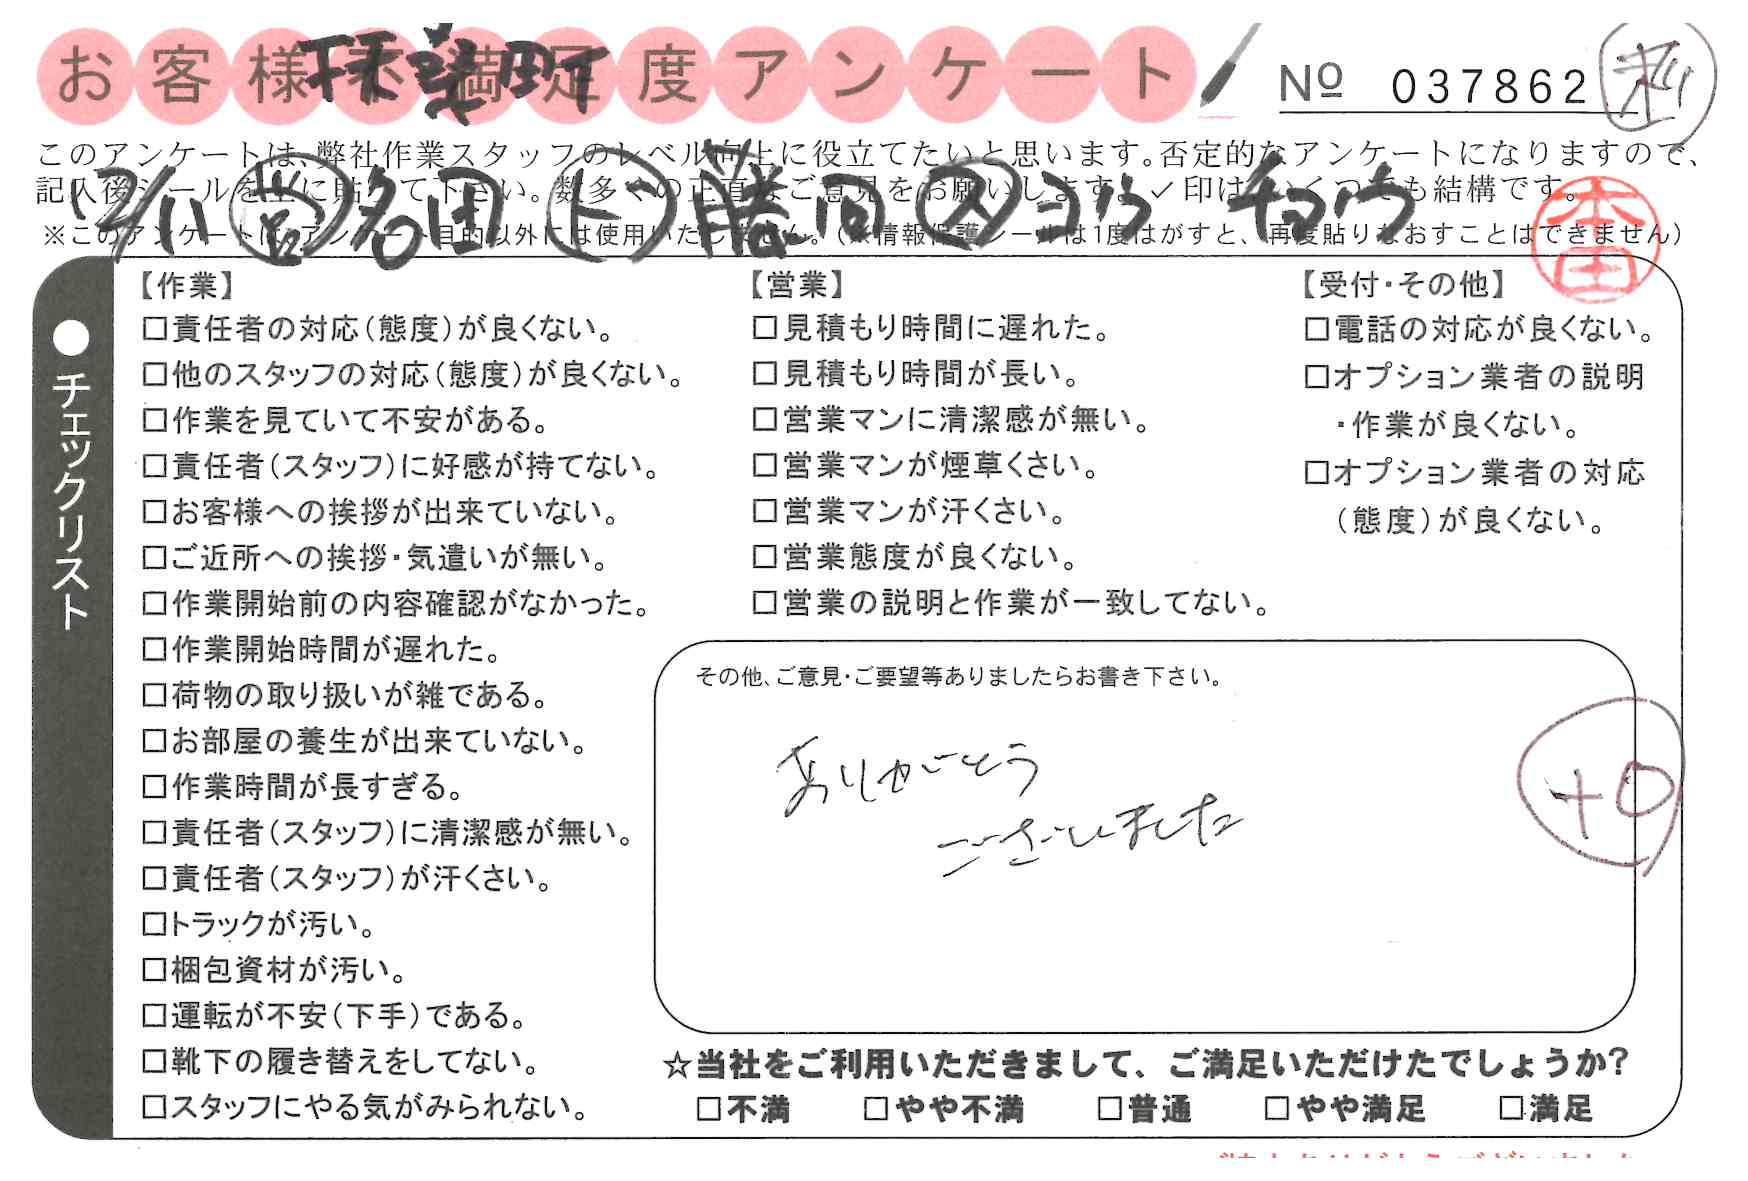 お客様不満足度アンケート
No 037862
このアンケートは、弊社作業スタッフのレベル向上に役立てたいと思います。否定的なアンケートになりますので、
記入後シールを上に貼って下さい。数多くの正直なご意見をお願いします。✓印はいくつでも結構です。
※このアンケートは、アンケート目的以外には使用いたしません。(※情報保護シールは1度はがすと、再度貼りなおすことはできません)
12/11 営 名田 ド 勝間 ス
本田
●チェックリスト
【作業】
□責任者の対応(態度)が良くない。
□他のスタッフの対応(態度)が良くない。
□作業を見ていて不安がある。
□責任者(スタッフ)に好感が持てない。
□お客様への挨拶が出来ていない。
□ご近所への挨拶・気遣いが無い。
□作業開始前の内容確認がなかった。
□作業開始時間が遅れた。
□荷物の取り扱いが雑である。
□お部屋の養生が出来ていない。
□作業時間が長すぎる。
□責任者(スタッフ)に清潔感が無い。
□責任者(スタッフ)が汗くさい。
□トラックが汚い。
□梱包資材が汚い。
□運転が不安(下手)である。
□靴下の履き替えをしてない。
□スタッフにやる気がみられない。
【営業】
□見積もり時間に遅れた。
□見積もり時間が長い。
□営業マンに清潔感が無い。
□営業マンが煙草くさい。
□営業マンが汗くさい。
□営業態度が良くない。
□営業の説明と作業が一致してない。
【受付・その他】
□電話の対応が良くない。
□オプション業者の説明
・作業が良くない。
□オプション業者の対応
(態度)が良くない。
その他、ご意見・ご要望等ありましたらお書き下さい。
ありがとう
ございました
+0
☆当社をご利用いただきまして、ご満足いただけたでしょうか?
□不満 □やや不満 □普通 □やや満足 □満足